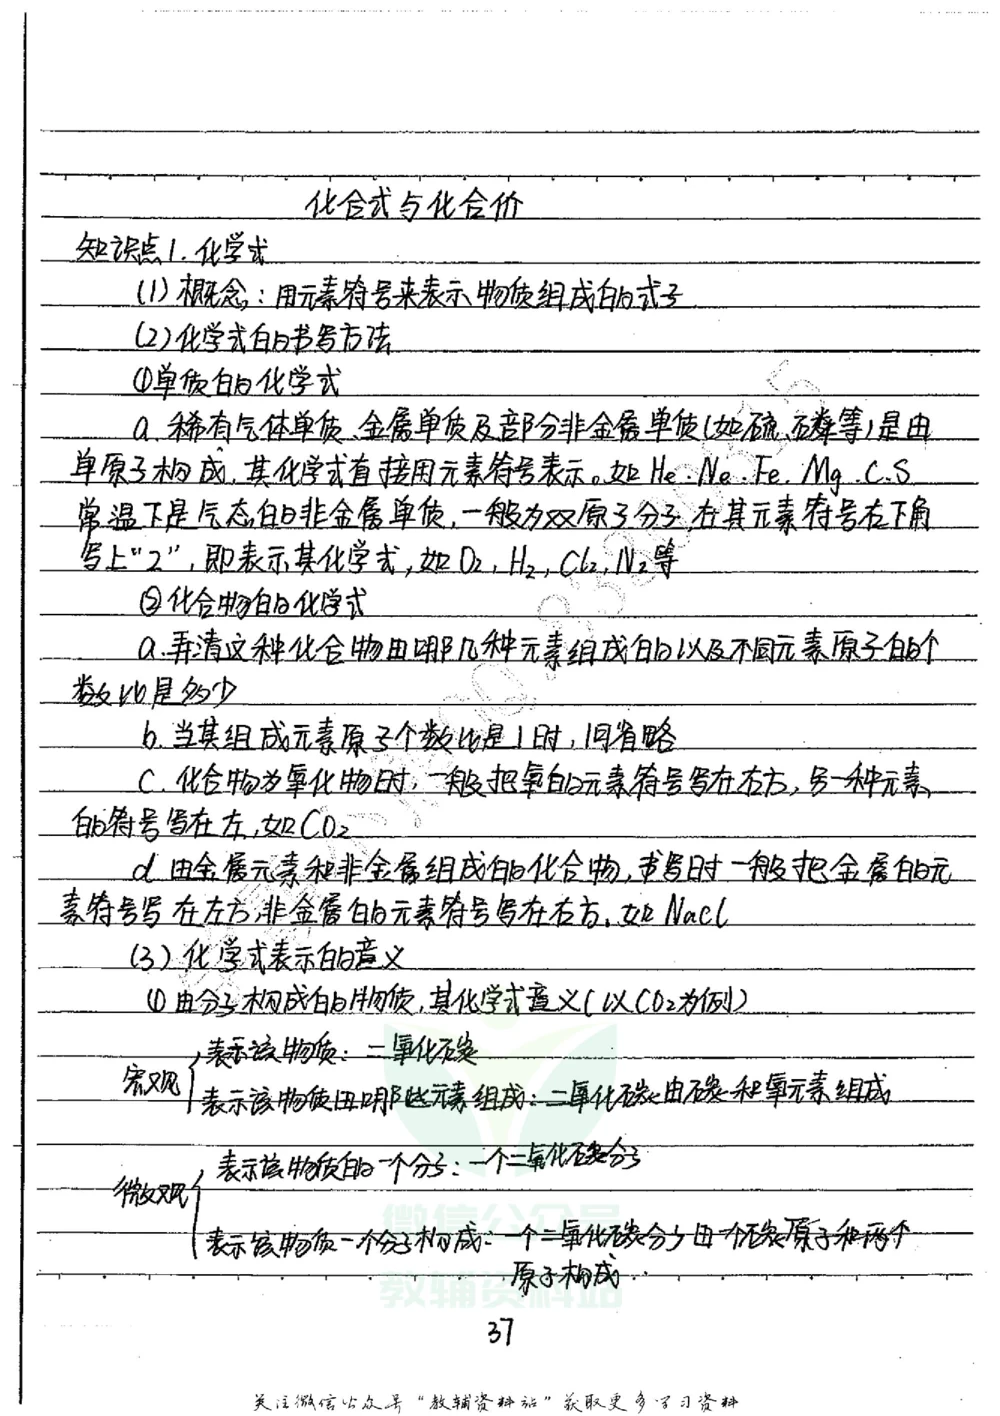 化合式与化合价
知识点1.化学式
(1)概念：用元素符号来表示物质组成的式子
(2)化学式的书写方法
①单质的化学式
a.稀有气体单质、金属单质及部分非金属单质(如硫、磷等)是由
单原子构成,其化学式直接用元素符号表示。如He.Ne.Fe.Mg.C.S
常温下是气态的非金属单质,一般为双原子分子,在其元素符号右下角
写上“2”,即表示其化学式,如O₂,H₂,Cl₂,N₂等
②化合物的化学式
a.弄清这种化合物由哪几种元素组成的以及不同元素原子的个
数比是多少
b.当其组成元素原子个数比是1时,1可省略
C.化合物为氧化物时,一般把氧的元素符号写在右方,另一种元素
的符号写在左,如CO₂
d.由金属元素和非金属组成的化合物,书写时一般把金属的元
素符号写在左方,非金属的元素符号写在右方.如Nacl
(3)化学式表示的意义
①由分子构成的物质,其化学式意义(以CO₂为例)
表示该物质：二氧化碳
宏观
表示该物质由哪些元素组成：二氧化碳由碳和氧元素组成
表示该物质的一个分子：一个二氧化碳分子
微观
表示该物质一个分子构成：一个二氧化碳分子由一个碳原子和两个
原子构成
微信公众号
教辅资料站
37
关注微信公众号“教辅资料站”获取更多学习资料